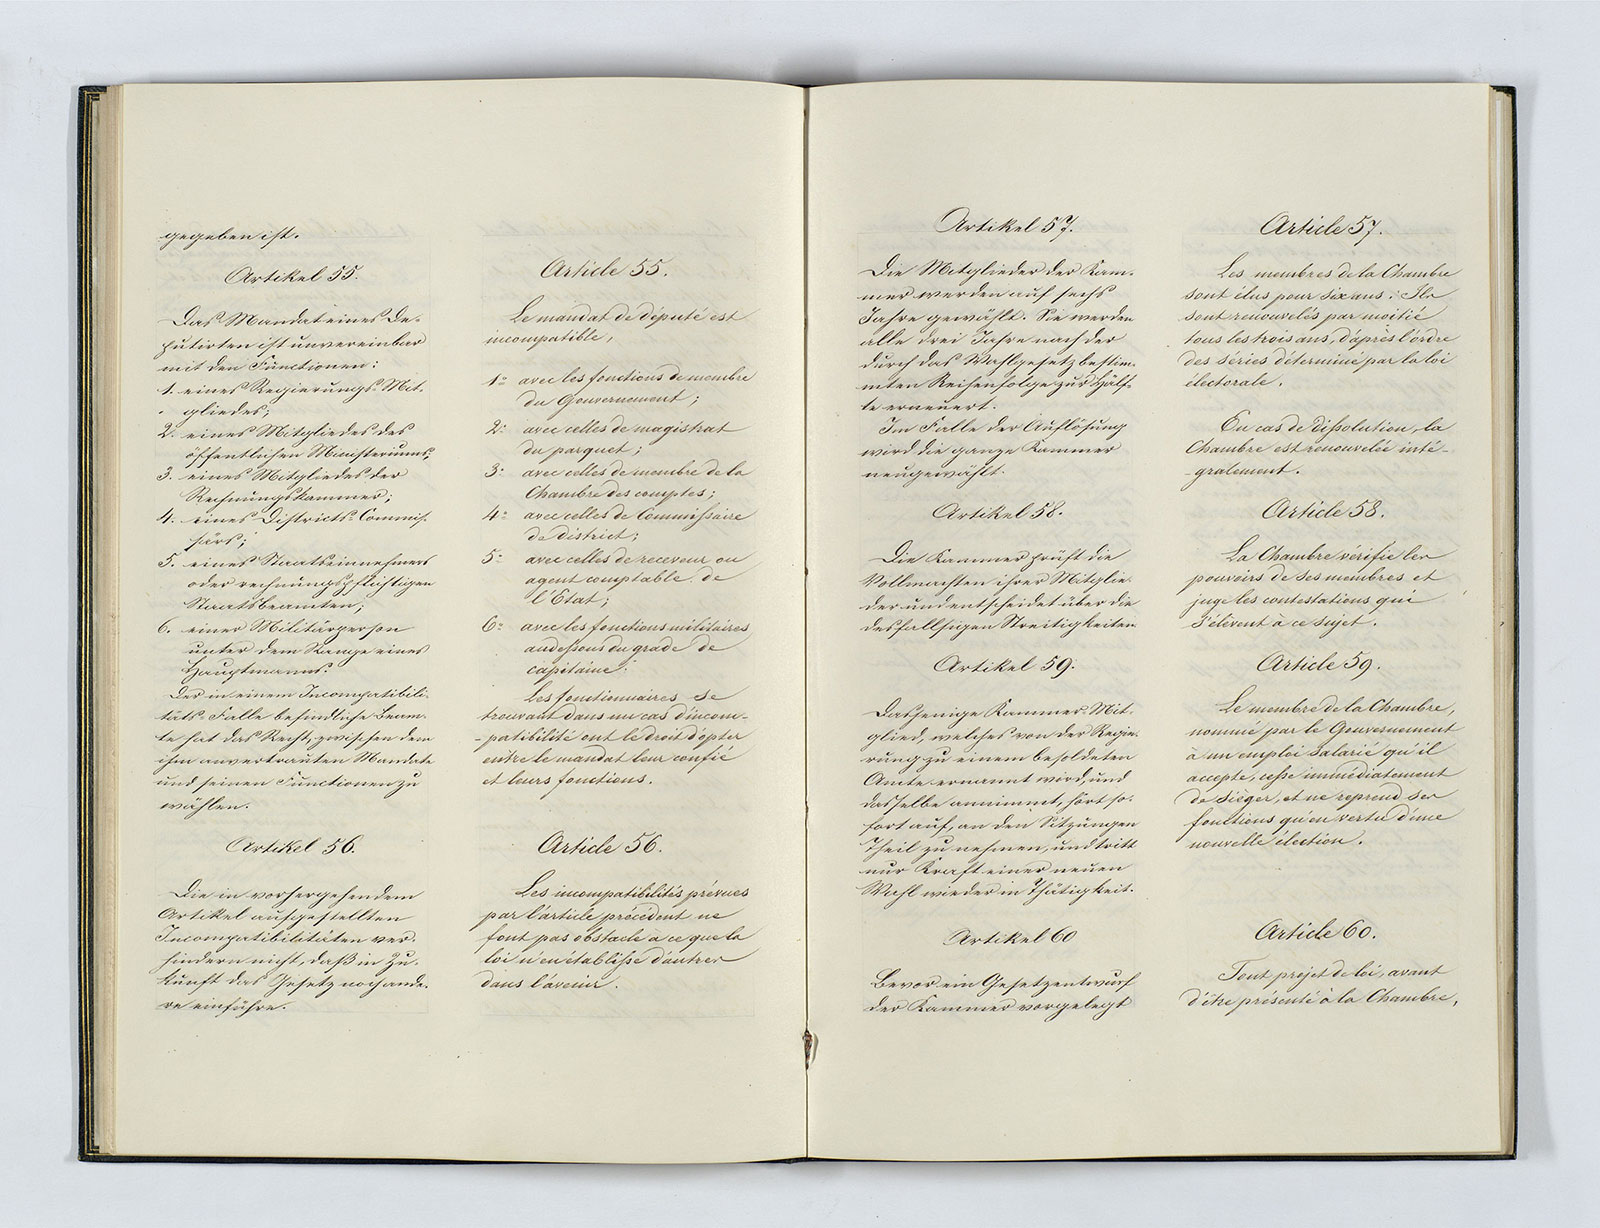 gegeben ist.
Artikel 55.
Das Mandat eines De-
putirten ist unvereinbar
mit den Functionen:
1. eines Regierungs-Mit-
gliedes;
2. eines Mitgliedes des
öffentlichen Ministeriums;
3. eines Mitgliedes der
Rechnungskammer;
4. eines Districts-Commis-
särs;
5. eines Staatseinnehmers
oder rechnungspflichtigen
Staatsbeamten;
6. einer Militärperson
unter dem Range eines
Hauptmanns.
Der in einem Incompatibili-
täts-Falle befindliche Beam-
te hat das Recht, zwischen dem
ihm anvertrauten Mandate
und seinen Functionen zu
wählen.
Artikel 56.
Die in vorhergehendem
Artikel aufgestellten
Incompatibilitäten ver-
hindern nicht, daß in Zu-
kunft das Gesetz noch ande-
re einführe.
Article 55.
Le mandat de député est
incompatible,
1º avec les fonctions de membre
du Gouvernement;
2º avec celles de magistrat
du parquet;
3º avec celles de membre de la
Chambre des comptes;
4º avec celles de Commissaire
de district;
5º avec celles de receveur ou
agent comptable de
l'Etat;
6º avec les fonctions militaires
au dessous du grade de
capitaine.
Les fonctionnaires se
trouvant dans un cas d'incom-
-patibilité ont le droit d'opter
entre le mandat leur confié
et leurs fonctions.
Article 56.
Les incompatibilités prévues
par l'article précédent ne
font pas obstacle à ce que la
loi n'en établisse d'autres
dans l'avenir.
Artikel 57.
Die Mitglieder der Kam-
mer werden auf sechs
Jahre gewählt. Sie werden
alle drei Jahre nach der
durch das Wahlgesetz bestim-
mten Reihenfolge zur Hälf-
te erneuert.
Im Falle der Auflösung
wird die ganze Kammer
neugewählt.
Artikel 58.
Die Kammer prüft die
Vollmachten ihrer Mitglie-
der und entscheidet über die
desfallsigen Streitigkeiten.
Artikel 59.
Dasjenige Kammer-Mit-
glied, welches von der Regie-
rung zu einem besoldeten
Amte ernannt wird, und
dasselbe annimmt, hört so-
fort auf, an den Sitzungen
Theil zu nehmen, und tritt
nur Kraft einer neuen
Wahl wieder in Thätigkeit.
Artikel 60
Bevor ein Gesetzentwurf
der Kammer vorgelegt
Article 57.
Les membres de la Chambre
sont élus pour six ans; Ils
sont renouvelés par moitié
tous les trois ans, d'après l'ordre
des séries déterminé par la loi
électorale.
En cas de dissolution, la
Chambre est renouvelée inté-
-gralement.
Article 58.
La Chambre vérifie les
pouvoirs de ses membres et
juge les contestations qui
s'élèvent à ce sujet.
Article 59.
Le membre de la Chambre,
nommé par le Gouvernement
à un emploi salarié qu'il
accepte, cesse immédiatement
de siéger, et ne reprend ses
fonctions qu'en vertu d'une
nouvelle élection.
Article 60.
Tout projet de loi, avant
d'être présenté à la Chambre,